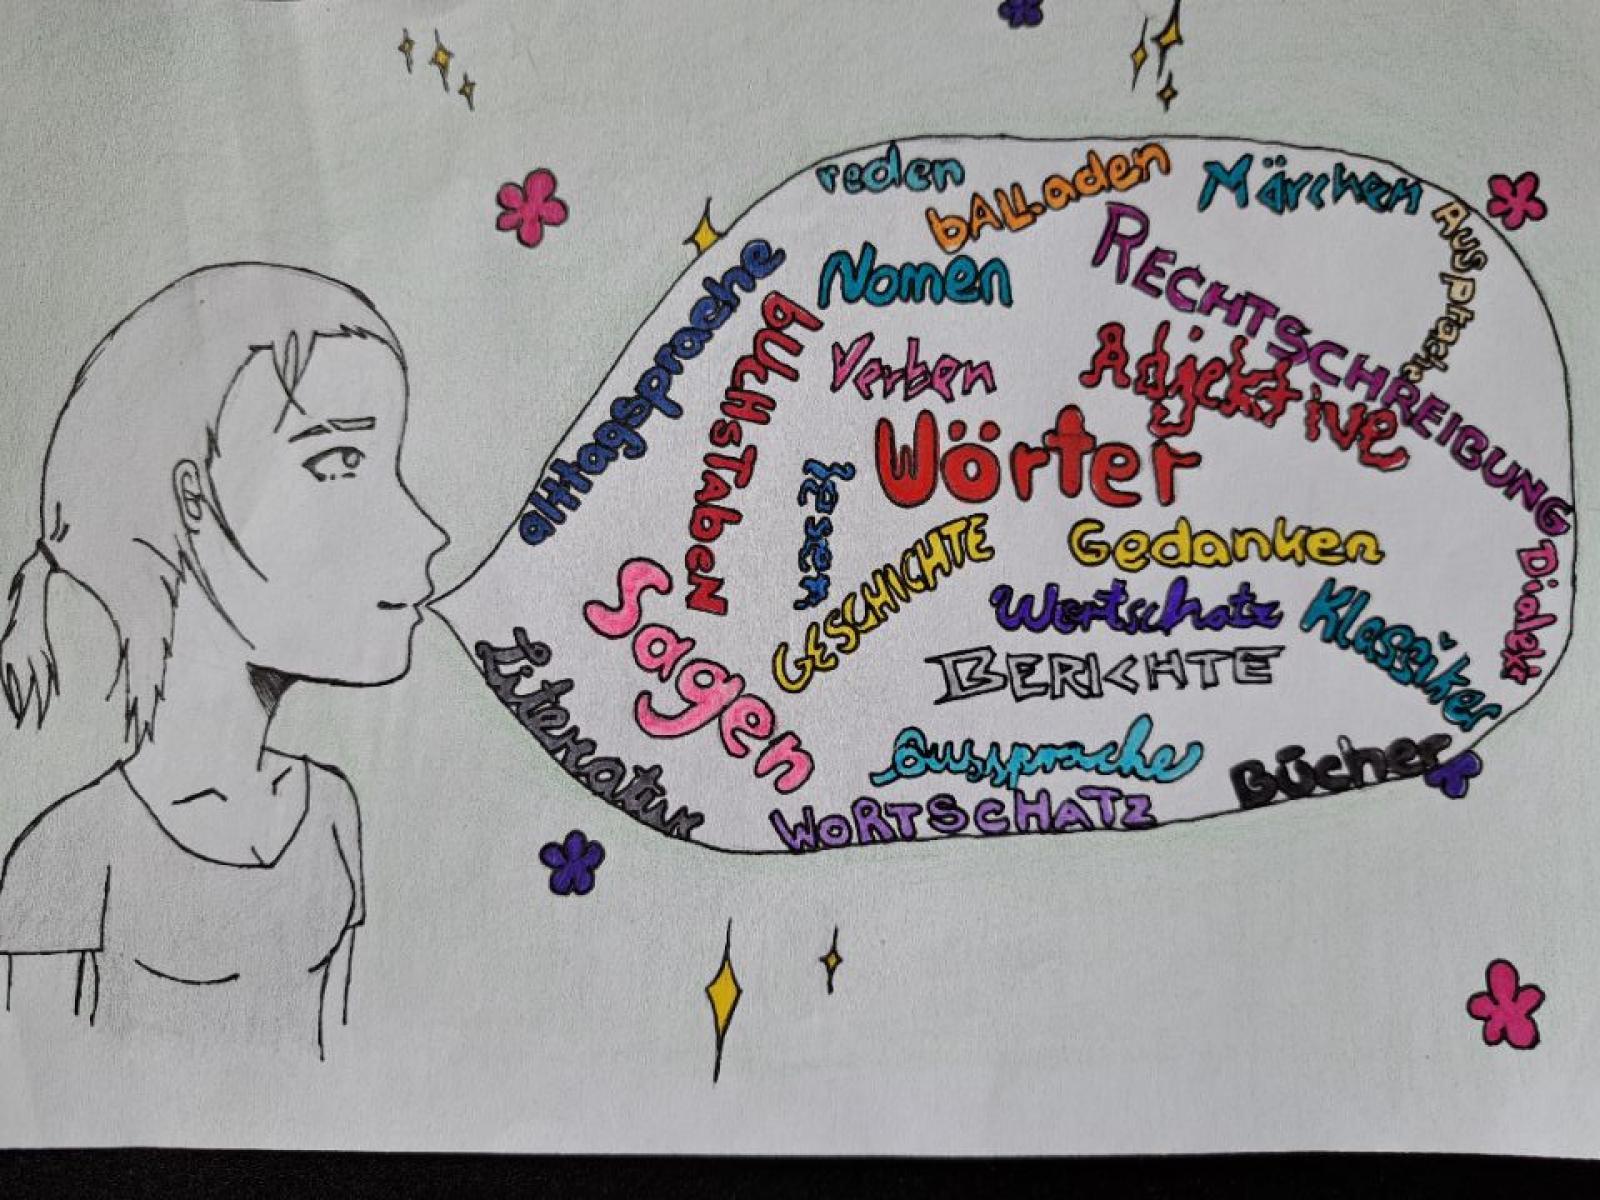 reden
bALLaden
Märchen
Ausprache
RECHTSCHREIBUNG
Nomen
alltagsprache
bUcHsTabeN
Verben
Adjektive
Wörter
lesen
GESCHICHTE
Gedanken
Dialekt
Sagen
Wortschatz
Klassiker
BERICHTE
Literatur
Aussprache
Bücher
WORTSCHATZ